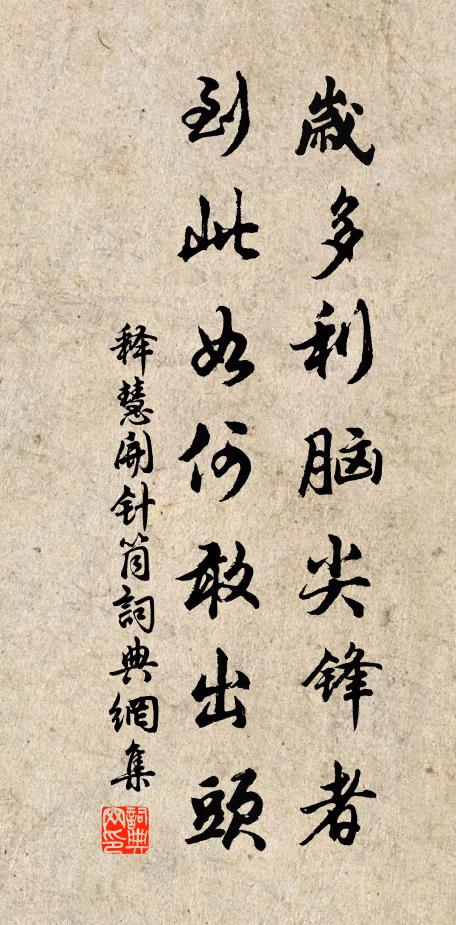 歲多利脑尖鋒者
到此如何敢出頭
释慧開针筒詞典網集
詞典网印